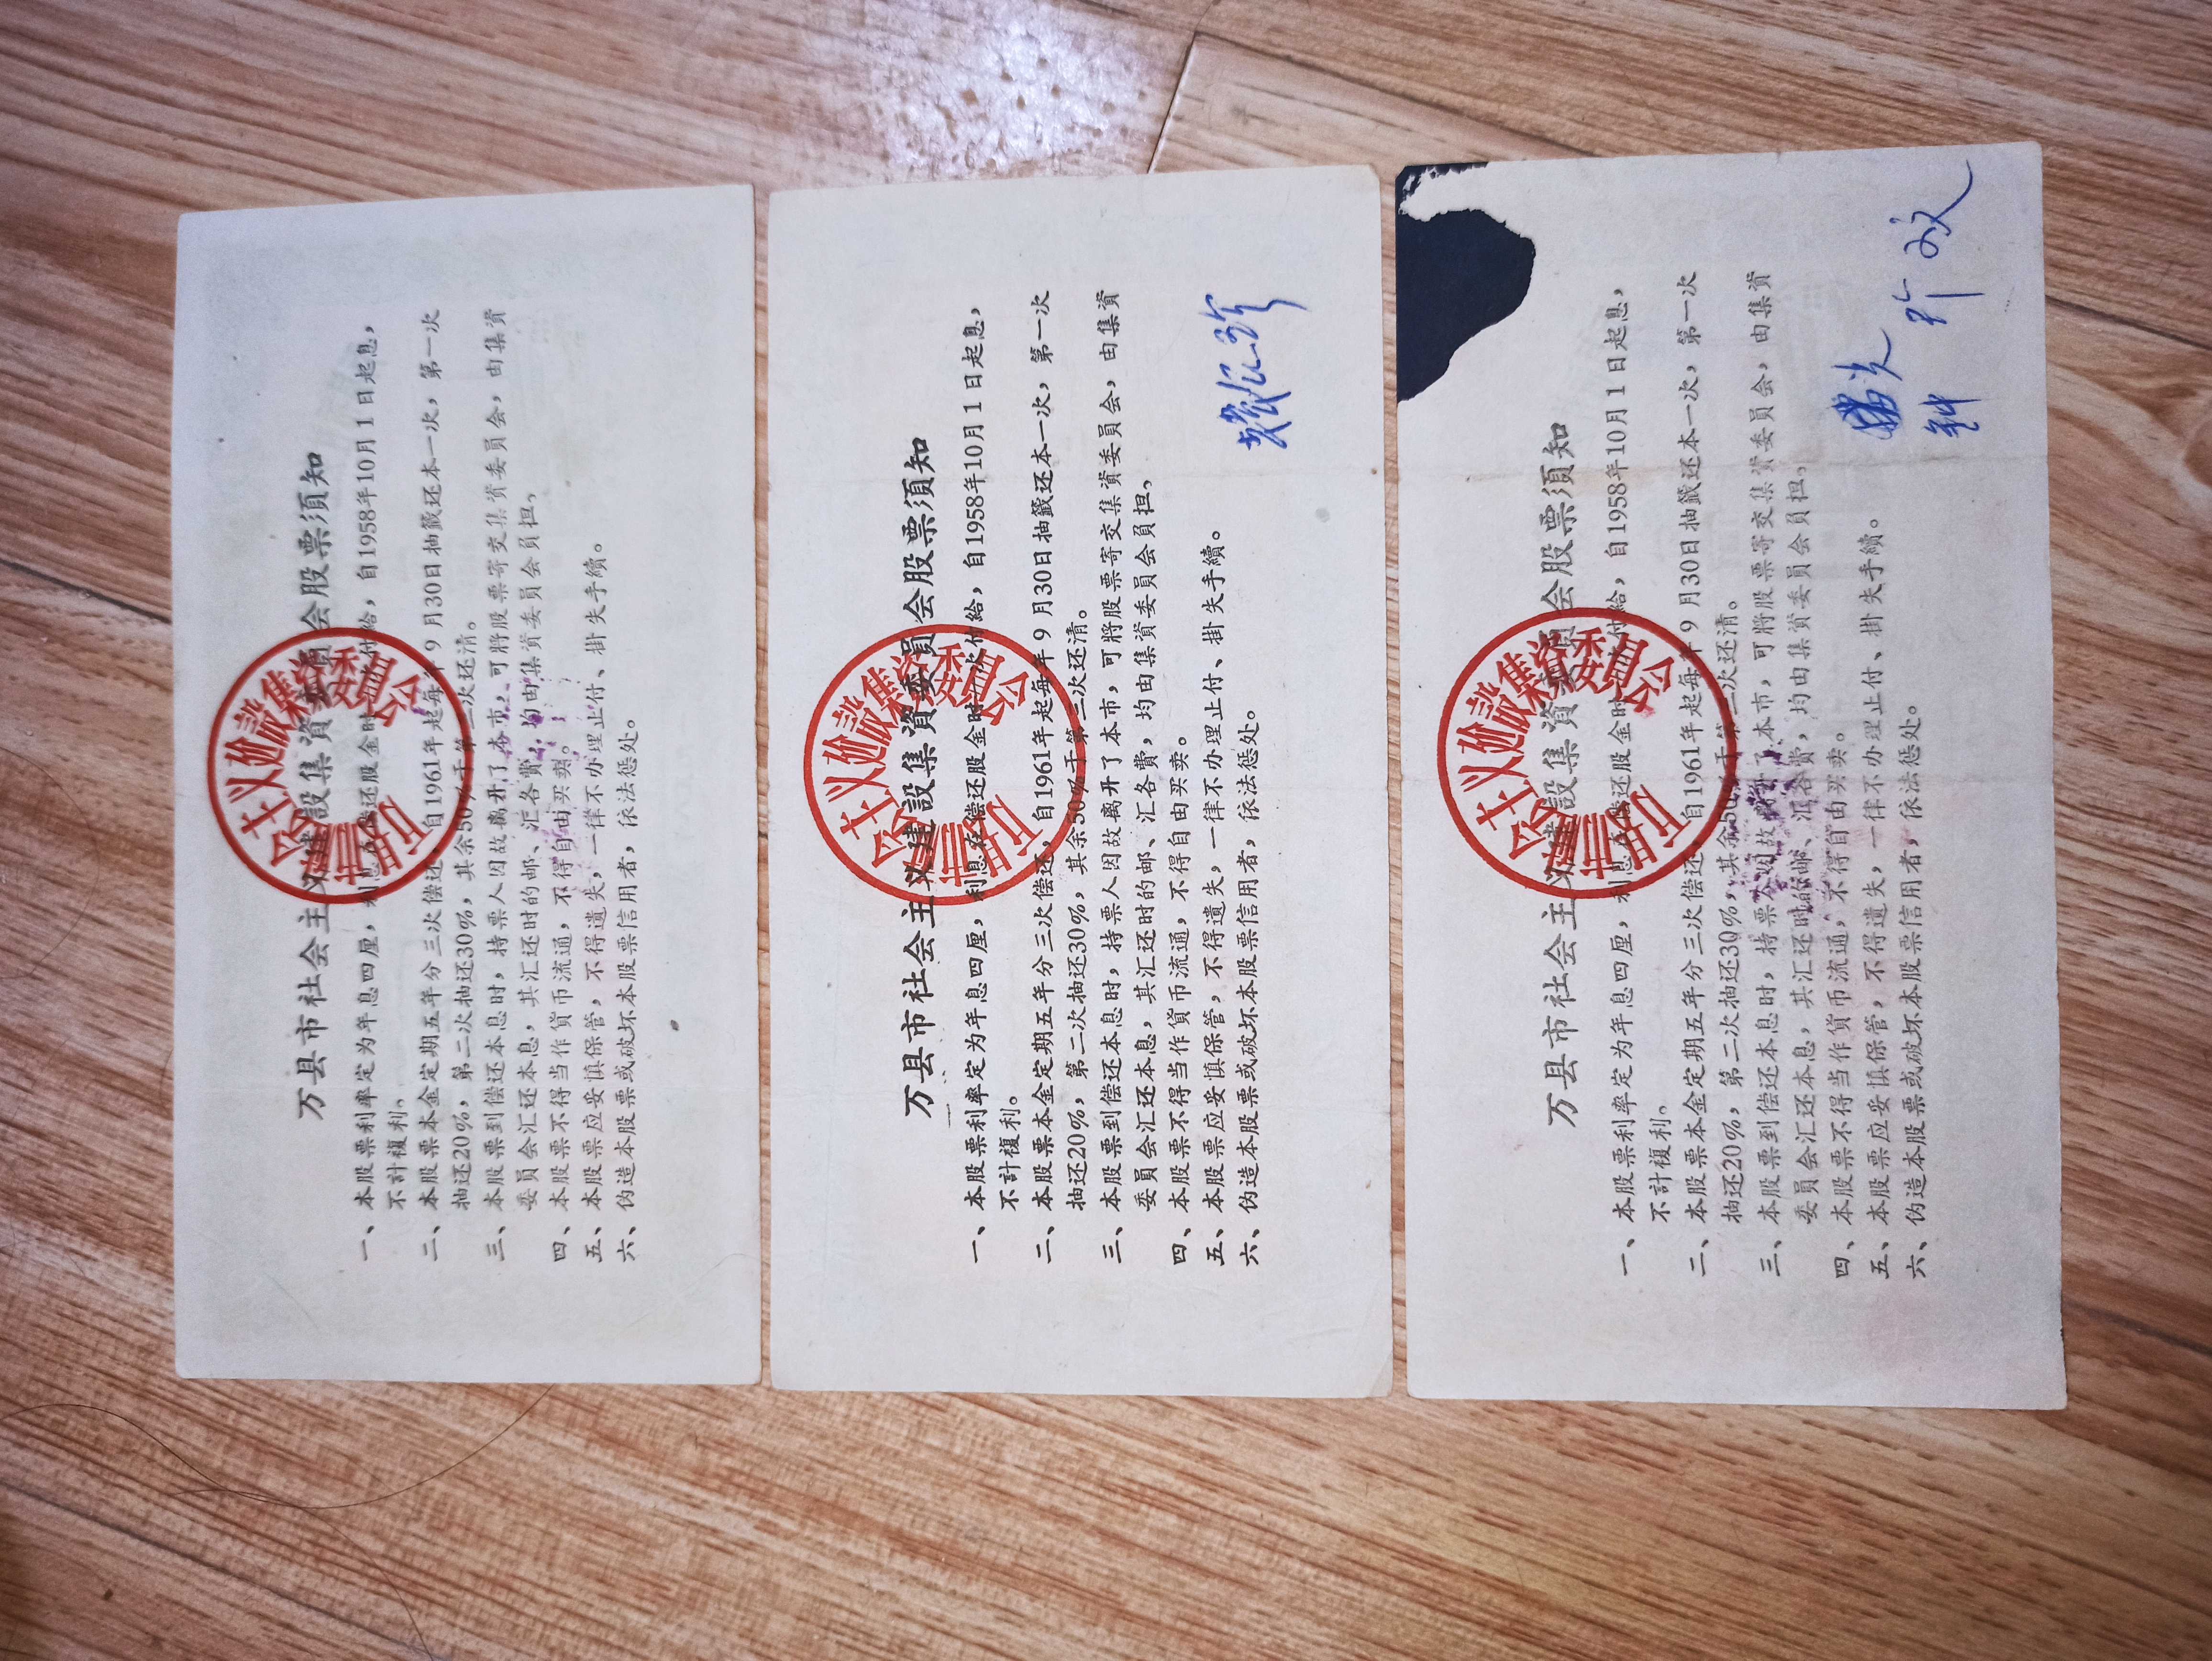 万县市社会主义建設集資委員会股票須知
一、本股票利率定为年息四厘，利息在偿还股金时一次付給，自1958年10月1日起息，
不計複利。
二、本股票本金定期五年分三次偿还，自1961年起每年9月30日抽籤还本一次，第一次
抽还20%，第二次抽还30%，其余50%于第三次还清。
三、本股票到偿还本息时，持票人因故离开了本市，可將股票寄交集資委員会，由集資
委員会汇还本息，其汇还时的邮、汇各費，均由集資委員会員担。
四、本股票不得当作貨币流通，不得自由买卖。
五、本股票应妥慎保管，不得遺失，一律不办理止付、掛失手續。
六、伪造本股票或破坏本股票信用者，依法惩处。
万县市社会主义建設集資委員会股票須知
一、本股票利率定为年息四厘，利息在偿还股金时一次付給，自1958年10月1日起息，
不計複利。
二、本股票本金定期五年分三次偿还，自1961年起每年9月30日抽籤还本一次，第一次
抽还20%，第二次抽还30%，其余50%于第三次还清。
三、本股票到偿还本息时，持票人因故离开了本市，可將股票寄交集資委員会，由集資
委員会汇还本息，其汇还时的邮、汇各費，均由集資委員会員担。
四、本股票不得当作貨币流通，不得自由买卖。
五、本股票应妥慎保管，不得遺失，一律不办理止付、掛失手續。
六、伪造本股票或破坏本股票信用者，依法惩处。
万县市社会主义建設集資委員会股票須知
一、本股票利率定为年息四厘，利息在偿还股金时一次付給，自1958年10月1日起息，
不計複利。
二、本股票本金定期五年分三次偿还，自1961年起每年9月30日抽籤还本一次，第一次
抽还20%，第二次抽还30%，其余50%于第三次还清。
三、本股票到偿还本息时，持票人因故离开了本市，可將股票寄交集資委員会，由集資
委員会汇还本息，其汇还时的邮、汇各費，均由集資委員会員担。
四、本股票不得当作貨币流通，不得自由买卖。
五、本股票应妥慎保管，不得遺失，一律不办理止付、掛失手續。
六、伪造本股票或破坏本股票信用者，依法惩处。